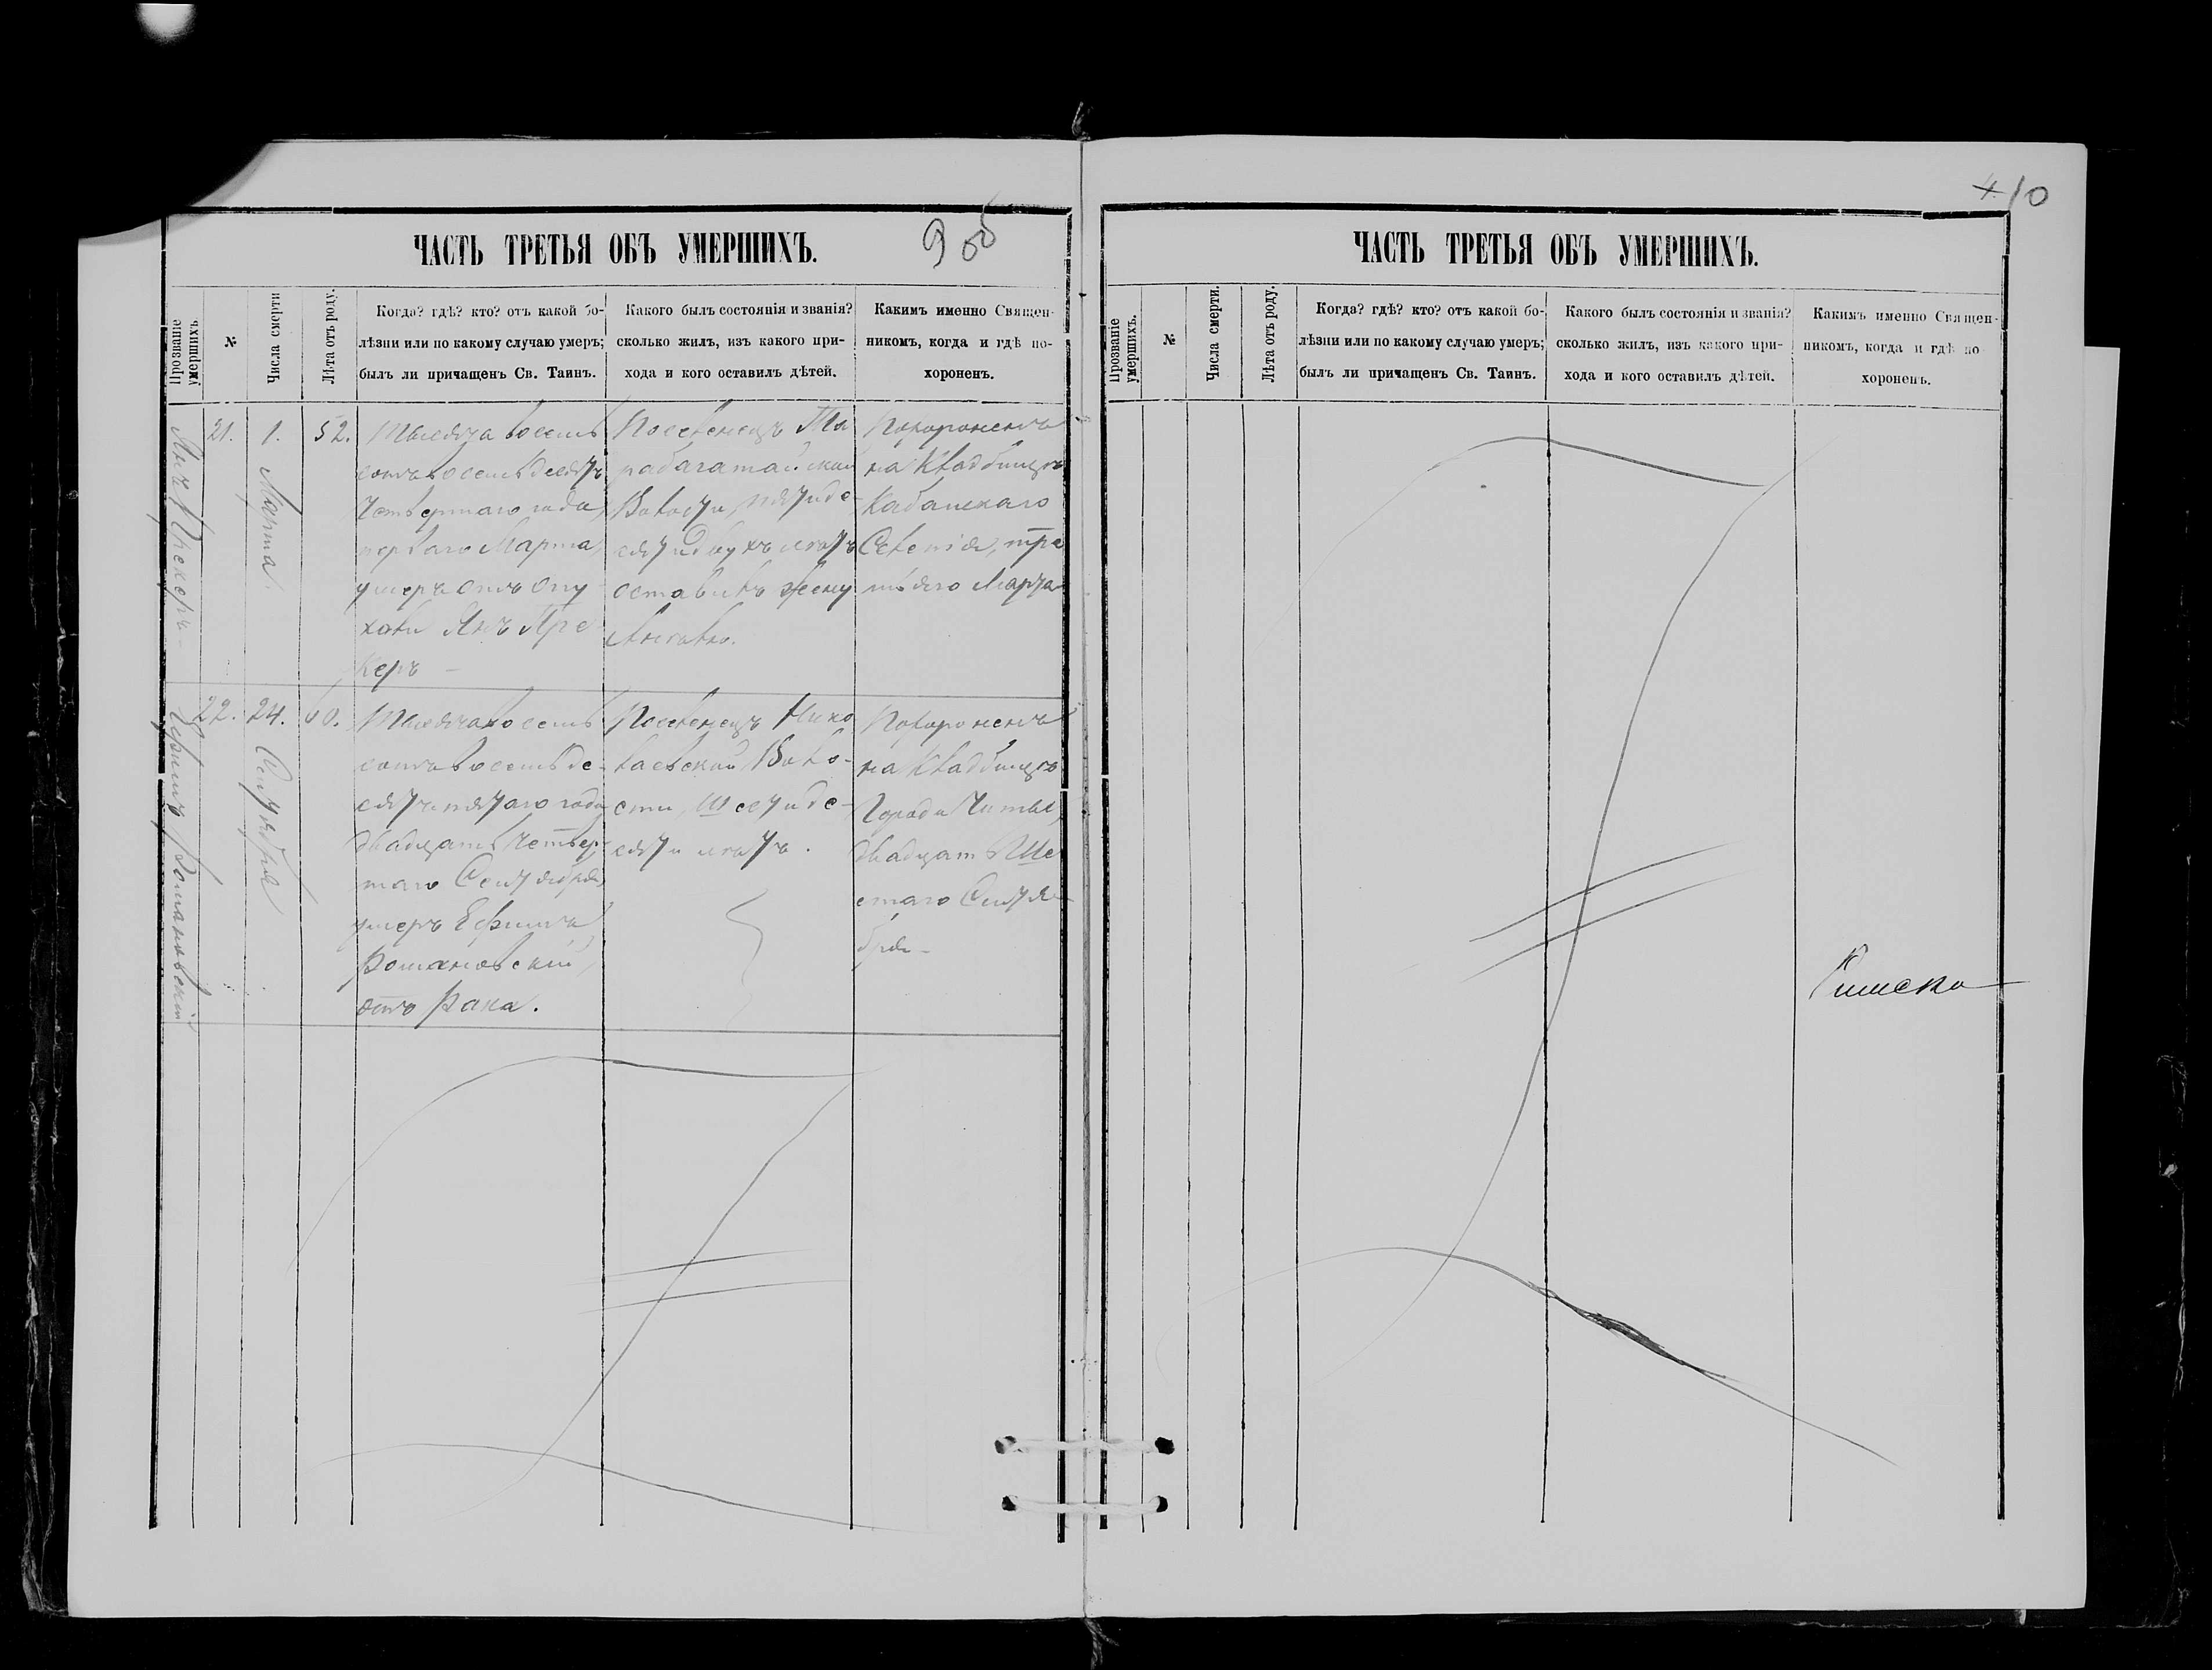 410
9 об
ЧАСТЬ ТРЕТЬЯ ОБЪ УМЕРШИХЪ.
Прозваніе умершихъ.
№
Числа смерти
Лѣта отъ роду.
Когда? гдѣ? кто? отъ какой бо-
лѣзни или по какому случаю умеръ;
былъ ли причащенъ Св. Таинъ.
Какого былъ состоянія и званія?
сколько жилъ, изъ какого при-
хода и кого оставилъ дѣтей.
Какимъ именно Священ-
никомъ, когда и гдѣ по-
хороненъ.
Янъ Прекеръ
21.
1.
Марта
52.
Тысяча восемь
сотъ восемьдесятъ
четвертаго года,
перваго Марта,
умеръ отъ опу
холи Янъ Пре
керъ –
Поселенецъ Та
рабагатайской
Волости, пятиде-
сяти двухъ летъ
оставивъ жену
Похороненъ
на Кладбище
Кабанскаго
Селенія, тре
тьяго Марта
Ефимъ Романовскій
22.
24.
Сентября
60.
Тысяча восемь
сотъ восемьде-
сятъ пятаго года
двадцать четвер
таго Сентября,
умеръ Ефимъ
Романовскій,
отъ Рака.
Поселенецъ Нико
лаевской Воло-
сти, Шестиде-
сяти летъ.
Похороненъ
на Кладбище
Города Читы,
двадцать Ше
стаго Сентя-
бря –
ЧАСТЬ ТРЕТЬЯ ОБЪ УМЕРШИХЪ.
Прозваніе умершихъ.
№
Числа смерти.
Лѣта отъ роду.
Когда? гдѣ? кто? отъ какой бо-
лѣзни или по какому случаю умеръ;
былъ ли причащенъ Св. Таинъ.
Какого былъ состоянія и званія?
сколько жилъ, изъ какого при-
хода и кого оставилъ дѣтей.
Какимъ именно Священ-
никомъ, когда и гдѣ по
хороненъ.
Римско